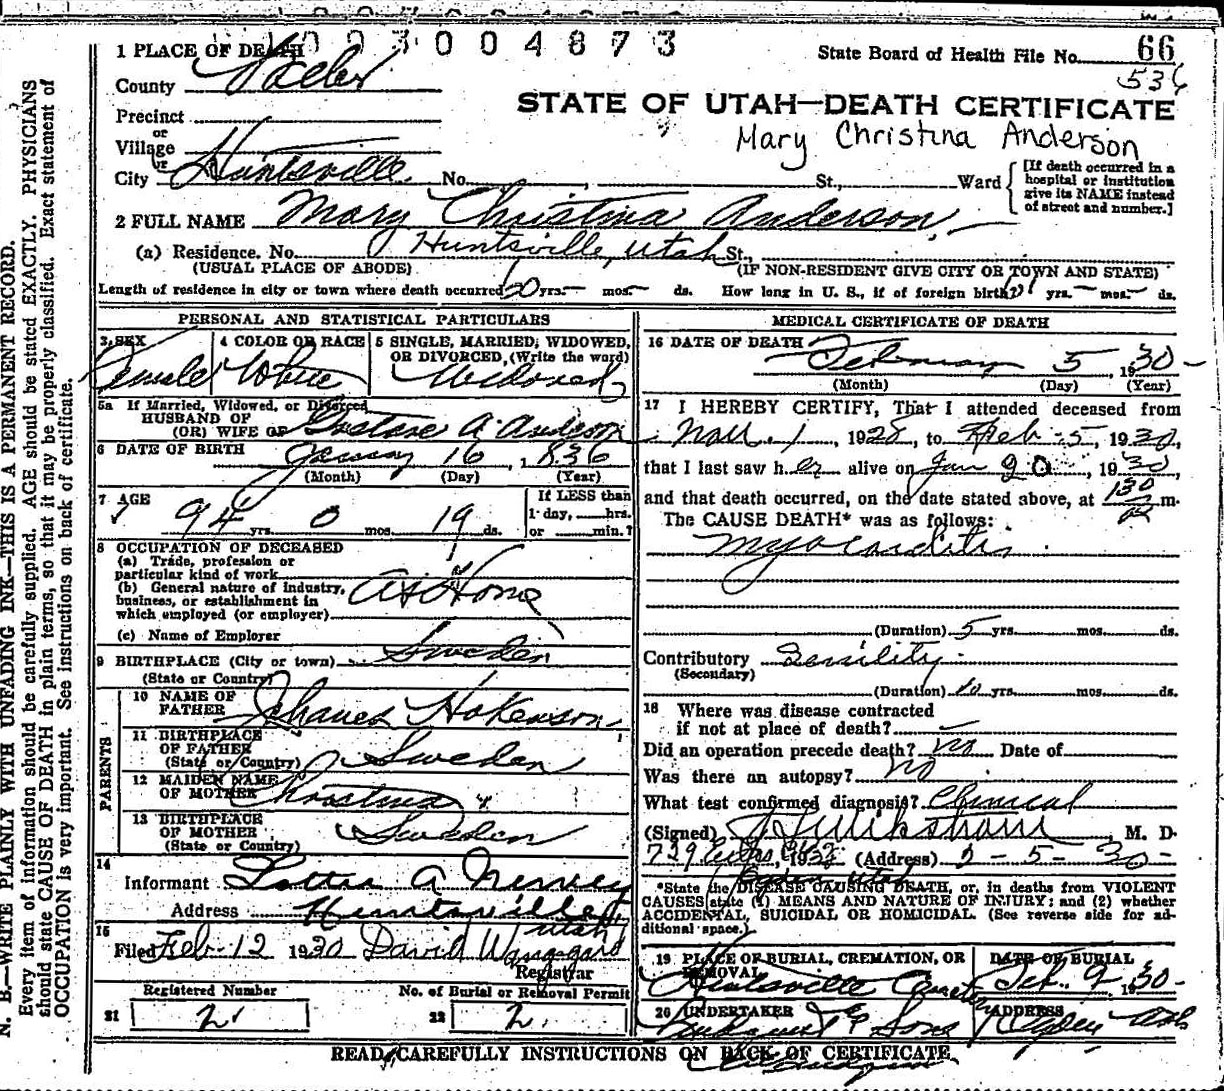 003004873
1 PLACE OF DEATH
State Board of Health File No. 66
536
County Weber
STATE OF UTAH—DEATH CERTIFICATE
Mary Christina Anderson
Precinct
or
Village
or
City Huntsville No. St., Ward
[If death occurred in a hospital or institution give its NAME instead of street and number.]
2 FULL NAME Mary Christina Anderson
(a) Residence. No. Huntsville, Utah St.,
(USUAL PLACE OF ABODE) (IF NON-RESIDENT GIVE CITY OR TOWN AND STATE)
Length of residence in city or town where death occurred 60 yrs. — mos. — ds. How long in U. S., if of foreign birth? yrs. — mos. — ds.
PERSONAL AND STATISTICAL PARTICULARS
3 SEX Female
4 COLOR OR RACE White
5 SINGLE, MARRIED, WIDOWED, OR DIVORCED, (Write the word) Widowed
5a If Married, Widowed, or Divorced
HUSBAND OF
(OR) WIFE OF Gustave A. Anderson
6 DATE OF BIRTH January 16, 1836
(Month) (Day) (Year)
7 AGE 94 yrs. 0 mos. 19 ds.
If LESS than 1 day, hrs. or min.?
8 OCCUPATION OF DECEASED
(a) Trade, profession or particular kind of work
(b) General nature of industry, business, or establishment in which employed (or employer) At Home
(c) Name of Employer
9 BIRTHPLACE (City or town) Sweden
(State or Country)
PARENTS
10 NAME OF FATHER Hokenson
11 BIRTHPLACE OF FATHER Sweden
(State or Country)
12 MAIDEN NAME OF MOTHER Christina
13 BIRTHPLACE OF MOTHER Sweden
(State or Country)
14 Informant A
Address Huntsville, Utah
15 Filed Feb-12 1930 David
Registrar
Registered Number
21 2.
No. of Burial or Removal Permit
22 2.
MEDICAL CERTIFICATE OF DEATH
16 DATE OF DEATH February 5, 1930
(Month) (Day) (Year)
17 I HEREBY CERTIFY, That I attended deceased from
Nov. 1, 1928, to Feb-5, 1930,
that I last saw her alive on Jan 20, 1930,
and that death occurred, on the date stated above, at 130 m.
The CAUSE DEATH* was as follows:
Myocarditis
(Duration) 5 yrs. mos. ds.
Contributory Senility
(Secondary)
(Duration) 10 yrs. mos. ds.
18 Where was disease contracted
if not at place of death? —
Did an operation precede death? no Date of
Was there an autopsy? no
What test confirmed diagnosis? Clinical
(Signed) M. D.
(Address) 2-5-30-
Ogden Utah
*State the DISEASE CAUSING DEATH, or, in deaths from VIOLENT
CAUSES state (1) MEANS AND NATURE OF INJURY; and (2) whether
ACCIDENTAL, SUICIDAL OR HOMICIDAL. (See reverse side for ad-
ditional space.)
19 PLACE OF BURIAL, CREMATION, OR REMOVAL Huntsville Cemetery
DATE OF BURIAL Feb. 9 1930
20 UNDERTAKER & Sons
ADDRESS Ogden Utah
READ CAREFULLY INSTRUCTIONS ON BACK OF CERTIFICATE
N. B.—WRITE PLAINLY WITH UNFADING INK—THIS IS A PERMANENT RECORD.
Every item of information should be carefully supplied. AGE should be stated EXACTLY. PHYSICIANS
should state CAUSE OF DEATH in plain terms, so that it may be properly classified. Exact statement of
OCCUPATION is very important. See instructions on back of certificate.